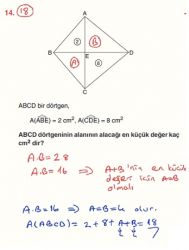 14. 18
A
2
B
B
D
E
A
8
C
ABCD bir dörtgen,
A(ABE) = 2 cm², A(CDE) = 8 cm²
ABCD dörtgeninin alanının alacağı en küçük değer kaç
cm² dir?
A.B = 2 8
A.B = 16 ⇒ A+B 'nin en küçük
değeri için A=B
olmalı
A.B = 16 ⇒ A=B=4 olur.
A(ABCD) = 2 + 8 + A + B = 18
4 4